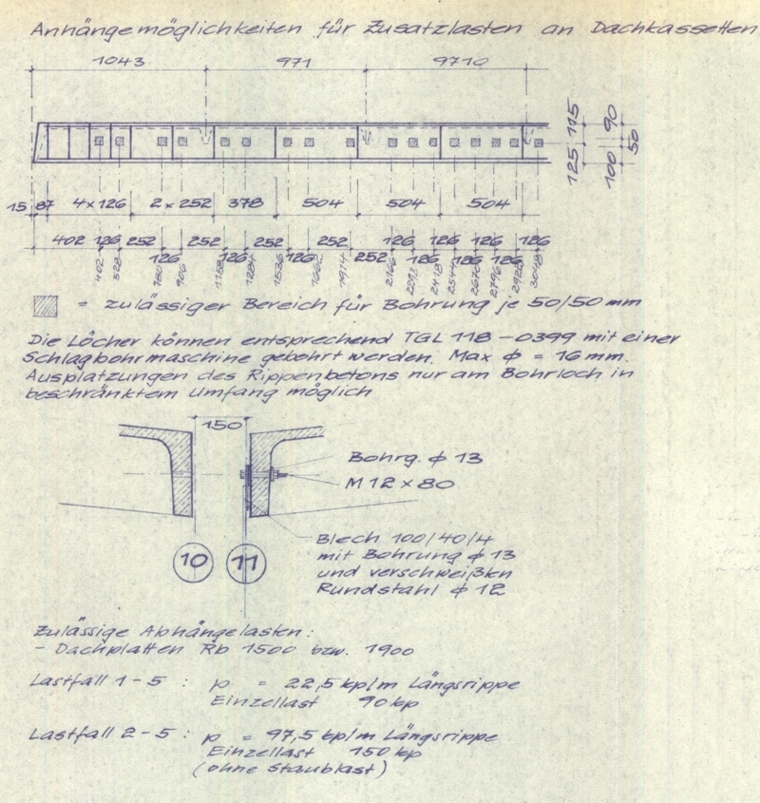 Anhängemöglichkeiten für Zusatzlasten an Dachkassetten
1043 971 9710
115 90
50
125 100
15 87 4x126 2x252 378 504 504 504
402 126 252 252 252 252 126 126 126 126
126 126 126 252 126 126 126
402 528 780 906 1158 1284 1536 1662 1914 2166 2292 2418 2544 2670 2796 2922 3048
= zulässiger Bereich für Bohrung je 50/50 mm
Die Löcher können entsprechend TGL 118-0399 mit einer
Schlagbohrmaschine gebohrt werden. Max ϕ = 16 mm.
Ausplatzungen des Rippenbetons nur am Bohrloch in
beschränktem Umfang möglich
150
Bohrg. ϕ 13
M 12 x 80
Blech 100/40/4
mit Bohrung ϕ 13
und verschweißten
Rundstahl ϕ 12
10 11
Zulässige Abhängelasten:
- Dachplatten Rb 1500 bzw. 1900
Lastfall 1-5 : p = 22,5 kp/m Längsrippe
Einzellast 90 kp
Lastfall 2-5 : p = 97,5 kp/m Längsrippe
Einzellast 150 kp
(ohne Staublast)